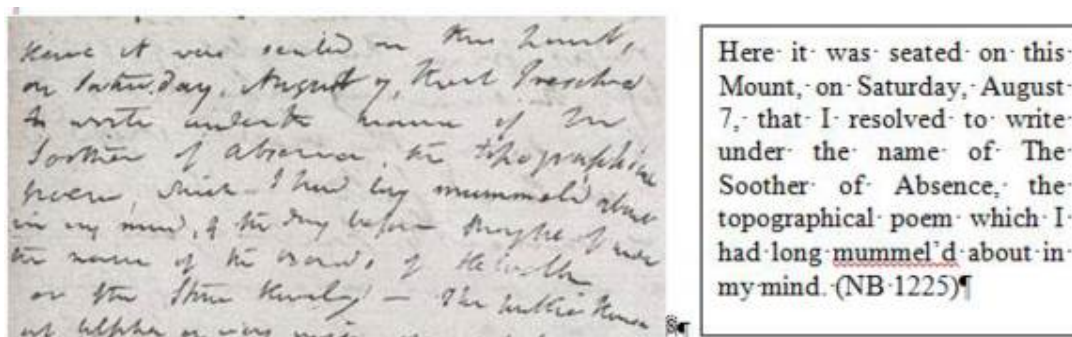 Here it was seated on this Mount,
on Saturday, August 7, that I resolved
to write under the name of The
Soother of Absence, the topographical
poem which I had long mummel'd about
in my mind, & the day before thought of under
the name of the
or the
Here it was seated on this
Mount, on Saturday, August
7, that I resolved to write
under the name of The
Soother of Absence, the
topographical poem which I
had long mummel'd about in
my mind. (NB 1225)¶